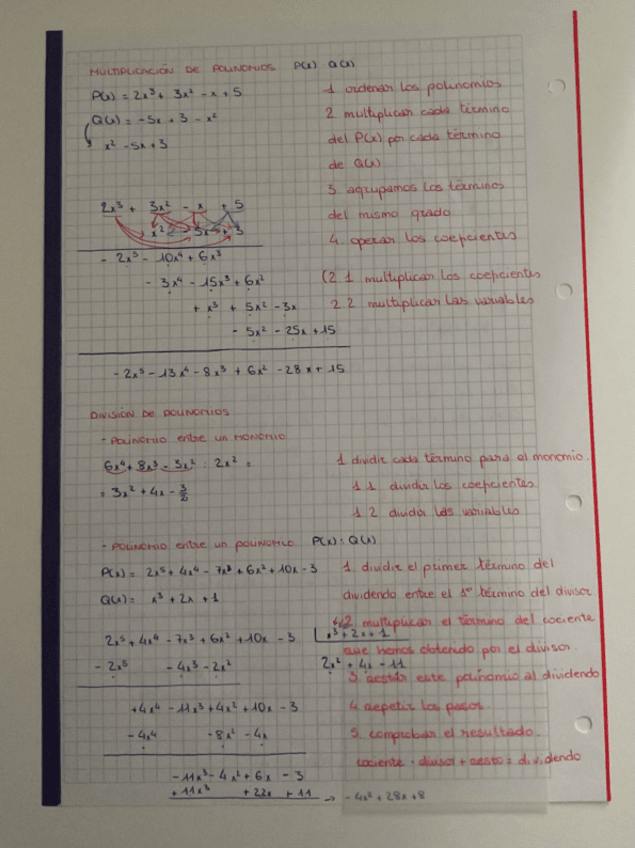 MULTIPLICACIÓN DE POLINOMIOS P(x) Q(x)
P(x) = 2x³ + 3x² - x + 5
Q(x) = -5x + 3 - x²
x² - 5x + 3
1 ordenar los polinomios
2 multiplicar cada término
del P(x) por cada término
de Q(x)
3. agrupamos los términos
del mismo grado
4. operar los coeficientes
(2.1 multiplicar los coeficientes
2.2 multiplicar las variables
2x³ + 3x² - x + 5
x² - 5x + 3
- 2x⁵ - 10x⁴ + 6x³
- 3x⁴ - 15x³ + 6x²
+ x³ + 5x² - 3x
- 5x² - 25x + 15
- 2x⁵ - 13x⁴ - 8x³ + 6x² - 28x + 15
DIVISIÓN DE POLINOMIOS
- POLINOMIO entre un MONOMIO
6x⁴ + 8x³ - 3x² : 2x² =
= 3x² + 4x - 3/2
1 dividir cada término para el monomio.
1.1 dividir los coeficientes
1.2 dividir las variables
- POLINOMIO entre un POLINOMIO P(x) : Q(x)
P(x) = 2x⁵ + 4x⁴ - 7x³ + 6x² + 10x - 3
Q(x) = x³ + 2x + 1
1. dividir el primer término del
dividendo entre el 1º término del divisor
2 multiplicar el término del cociente
que hemos obtenido por el divisor.
3 restar este polinomio al dividendo
4 repetir los pasos.
5. comprobar el resultado.
cociente · divisor + resto = dividendo
2x⁵ + 4x⁴ - 7x³ + 6x² + 10x - 3 x³ + 2x + 1
- 2x⁵ - 4x³ - 2x² 2x² + 4x - 11
+4x⁴ - 11x³ + 4x² + 10x - 3
- 4x⁴ - 8x² - 4x
- 11x³ - 4x² + 6x - 3
+ 11x³ + 22x + 11 → - 4x² + 28x + 8